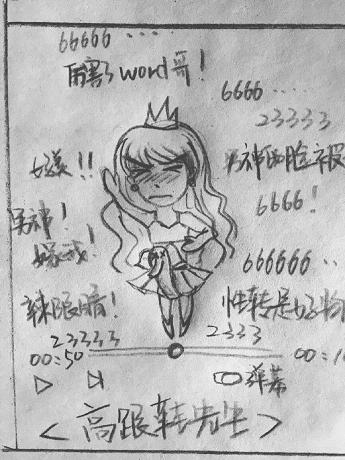 66666 ....
厉害了word哥！
6666 ....
23333
嫁！！
男神的脸被
6666！
男神！
嫁我！
666666 ..
辣眼睛！
性转是好物
23333
2333
00:50
00:1
弹幕
<高跟鞋先生>